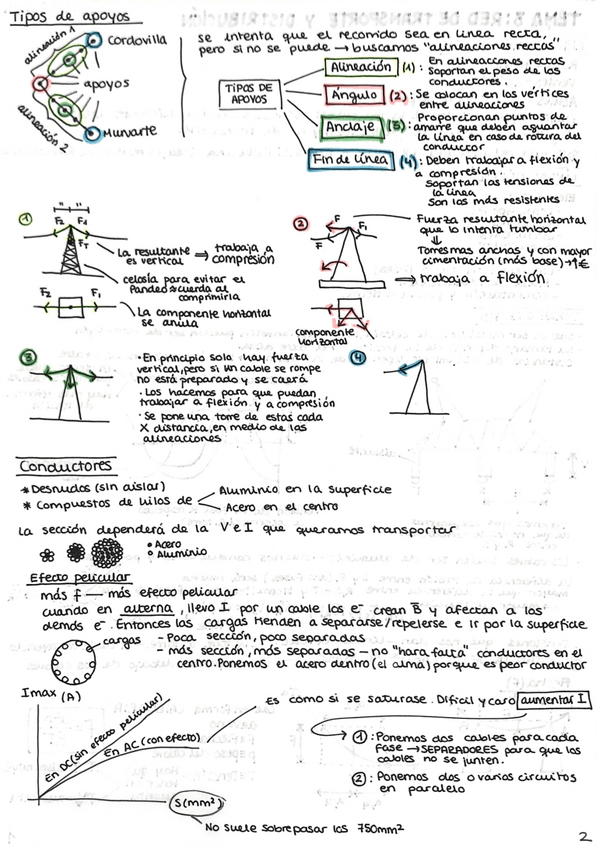 Tipos de apoyos
alineación 1
Cordovilla
apoyos
alineación 2
Muruarte
se intenta que el recorrido sea en línea recta,
pero si no se puede → buscamos "alineaciones rectas"
TIPOS DE
APOYOS
Alineación (1): En alineaciones rectas
Soportan el peso de los
conductores.
Ángulo (2): Se colocan en los vértices
entre alineaciones
Anclaje (3): Proporcionan puntos de
amarre que deben aguantar
la línea en caso de rotura del
conductor
Fin de Línea (4): Deben trabajar a flexión y
a compresión.
Soportan las tensiones de
la línea
Son los más resistentes
1
F2 F1
FT
La resultante
es vertical ⇒ trabaja a
compresión
celosía para evitar el
Pandeo ≈ cuerda al
comprimirla
F2 F1
La componente horizontal
se anula
2
F
F
Fuerza resultante horizontal
que lo intenta tumbar
⇓
Torres mas anchas y con mayor
cimentación (más base) → ↑€
⇒ trabaja a flexión
componente
horizontal
3
• En principio solo hay fuerza
vertical, pero si un cable se rompe
no está preparado y se caerá
• Los hacemos para que puedan
trabajar a flexión y a compresión
• Se pone una torre de estas cada
X distancia, en medio de las
alineaciones
4
Conductores
* Desnudos (sin aislar)
* Compuestos de hilos de
Aluminio en la superficie
Acero en el centro
La sección dependerá de la V e I que queramos transportar
• Acero
○ Aluminio
Efecto pelicular
más f — más efecto pelicular
cuando en alterna, llevo I por un cable los e⁻ crean B y afectan a los
demás e⁻. Entonces las cargas tienden a separarse/repelerse e ir por la superficie
cargas
- Poca sección, poco separadas
- más sección, más separadas — no "hará falta" conductores en el
centro. Ponemos el acero dentro (el alma) porque es peor conductor
Imax (A)
En DC (sin efecto pelicular)
En AC (con efecto)
S (mm²)
No suele sobrepasar los 750mm²
Es como si se saturase. Difícil y caro aumentar I
1: Ponemos dos cables para cada
fase → SEPARADORES para que los
cables no se junten.
2: Ponemos dos o varios circuitos
en paralelo
2